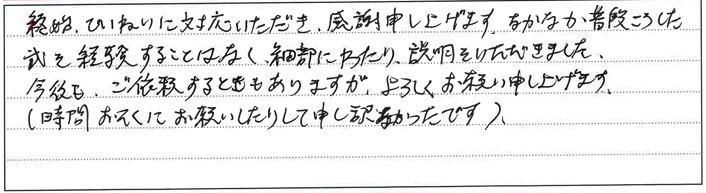 終始、ひいねりに対応いただき、感謝申し上げます。なかなか普段こうした
式を経験することはなく、細部にわったり、説明をいただきました。
今後も、ご依頼するときもありますが、よろしくお願い申し上げます。
(時間おそくにお願いしたりして申し訳なかったです)。